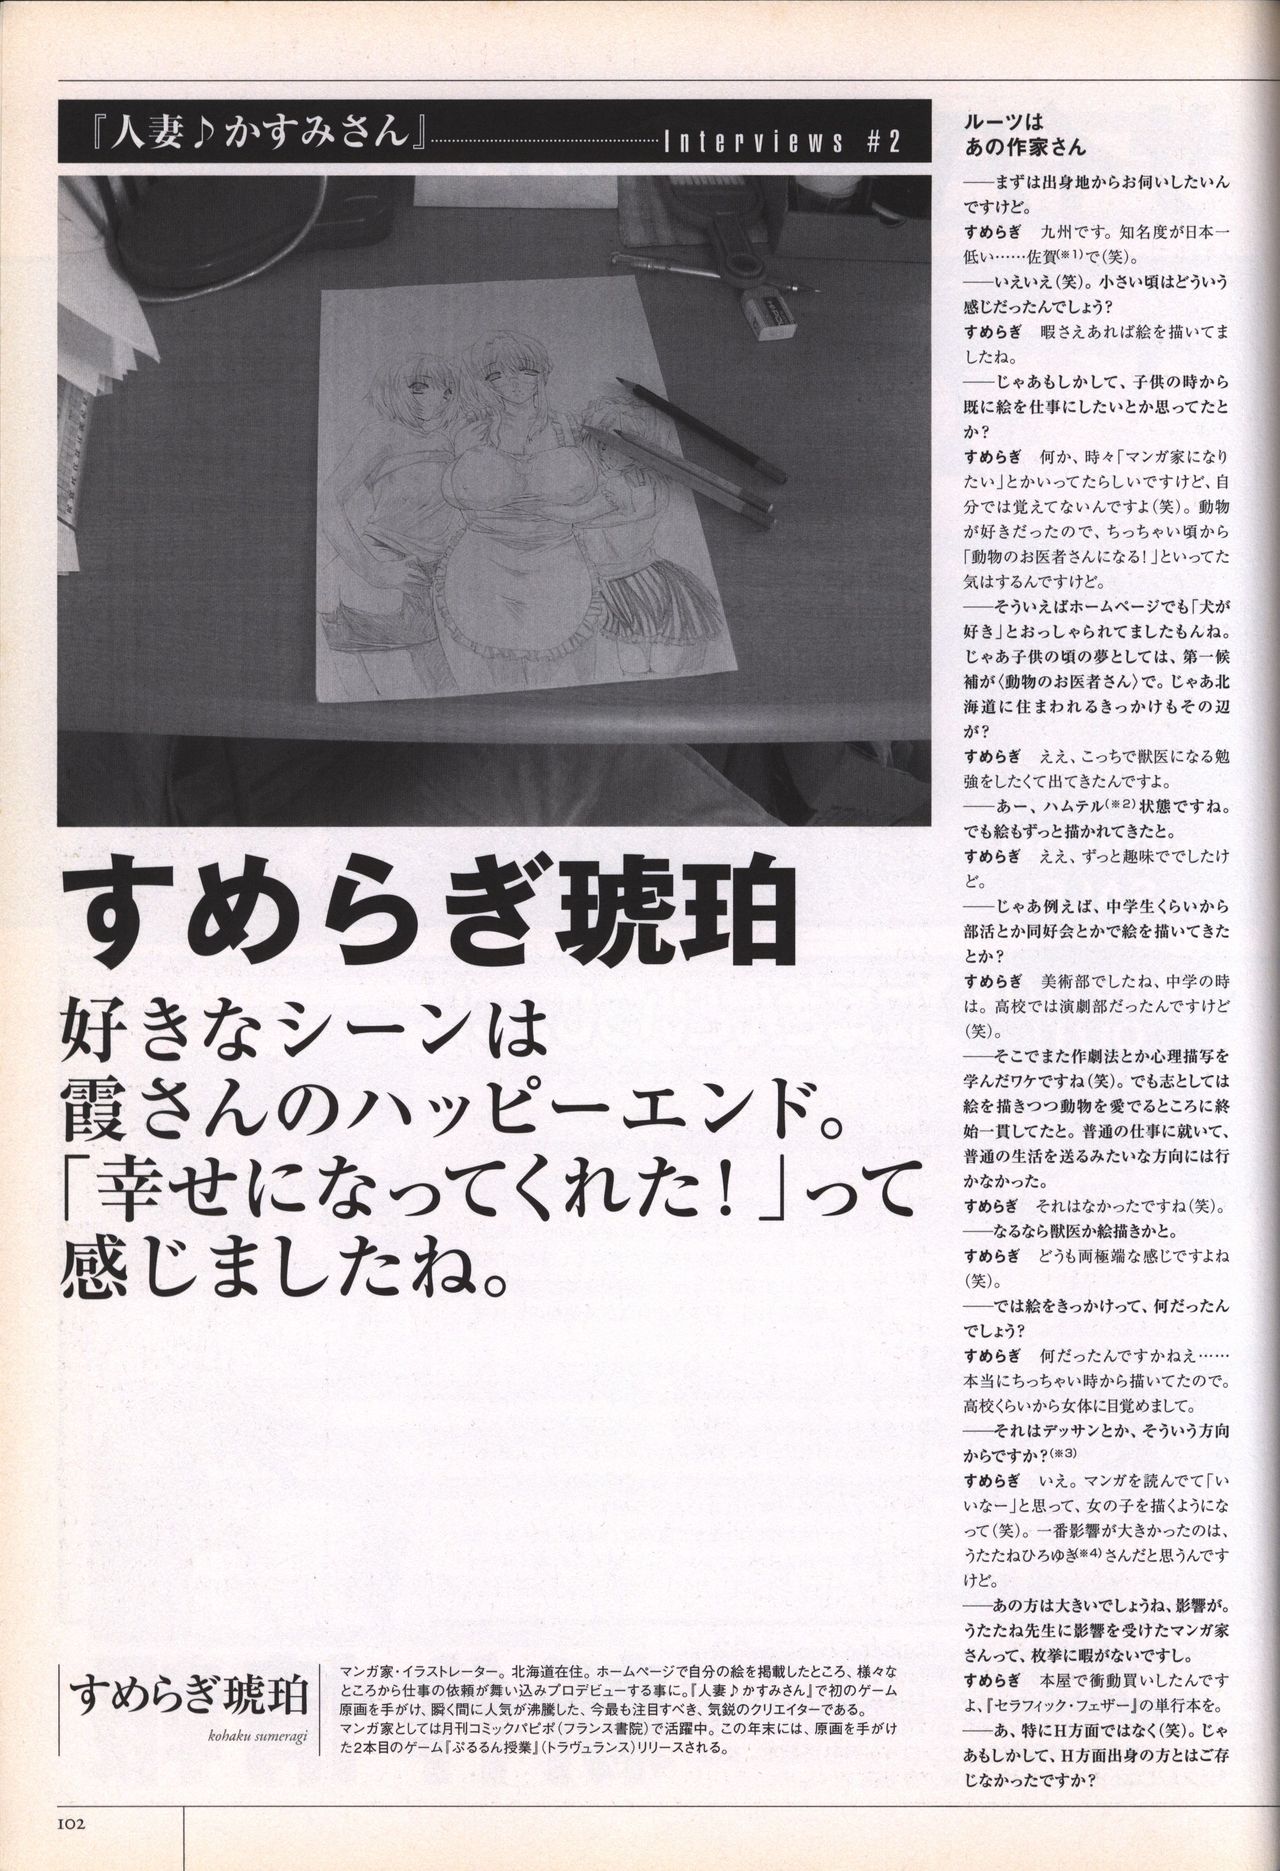 『人妻♪かすみさん』
Interviews #2
すめらぎ琥珀
好きなシーンは
霞さんのハッピーエンド。
「幸せになってくれた!」って
感じましたね。
すめらぎ琥珀
kohaku sumeragi
マンガ家・イラストレーター。北海道在住。ホームページで自分の絵を掲載したところ、様々な
ところから仕事の依頼が舞い込みプロデビューする事に。『人妻♪かすみさん』で初のゲーム
原画を手がけ、瞬く間に人気が沸騰した、今最も注目すべき、気鋭のクリエイターである。
マンガ家としては月刊コミックパピポ(フランス書院)で活躍中。この年末には、原画を手がけ
た2本目のゲーム『ぷるるん授業』(トラヴュランス)リリースされる。
ルーツは
あの作家さん
――まずは出身地からお伺いしたいん
ですけど。
すめらぎ 九州です。知名度が日本一
低い……佐賀(※1)で(笑)。
――いえいえ(笑)。小さい頃はどういう
感じだったんでしょう?
すめらぎ 暇さえあれば絵を描いてま
したね。
――じゃあもしかして、子供の時から
既に絵を仕事にしたいとか思ってたと
か?
すめらぎ 何か、時々「マンガ家になり
たい」とかいってたらしいですけど、自
分では覚えてないんですよ(笑)。動物
が好きだったので、ちっちゃい頃から
「動物のお医者さんになる!」といってた
気はするんですけど。
――そういえばホームページでも「犬が
好き」とおっしゃられてましたもんね。
じゃあ子供の頃の夢としては、第一候
補が〈動物のお医者さん〉で。じゃあ北
海道に住まわれるきっかけもその辺
が?
すめらぎ ええ、こっちで獣医になる勉
強をしたくて出てきたんですよ。
――あー、ハムテル(※2)状態ですね。
でも絵もずっと描かれてきたと。
すめらぎ ええ、ずっと趣味ででしたけ
ど。
――じゃあ例えば、中学生くらいから
部活とか同好会とかで絵を描いてきた
とか?
すめらぎ 美術部でしたね、中学の時
は。高校では演劇部だったんですけど
(笑)。
――そこでまた作劇法とか心理描写を
学んだワケですね(笑)。でも志としては
絵を描きつつ動物を愛でるところに終
始一貫してたと。普通の仕事に就いて、
普通の生活を送るみたいな方向には行
かなかった。
すめらぎ それはなかったですね(笑)。
――なるなら獣医か絵描きかと。
すめらぎ どうも両極端な感じですよね
(笑)。
――では絵をきっかけって、何だったん
でしょう?
すめらぎ 何だったんですかねえ……
本当にちっちゃい時から描いてたので。
高校くらいから女体に目覚めまして。
――それはデッサンとか、そういう方向
からですか?(※3)
すめらぎ いえ。マンガを読んでて「い
いなー」と思って、女の子を描くようにな
って(笑)。一番影響が大きかったのは、
うたたねひろゆき(※4)さんだと思うんです
けど。
――あの方は大きいでしょうね、影響が。
うたたね先生に影響を受けたマンガ家
さんって、枚挙に暇がないですし。
すめらぎ 本屋で衝動買いしたんです
よ、『セラフィック・フェザー』の単行本を。
――あ、特にH方面ではなく(笑)。じゃ
あもしかして、H方面出身の方とはご存
じなかったですか?
102